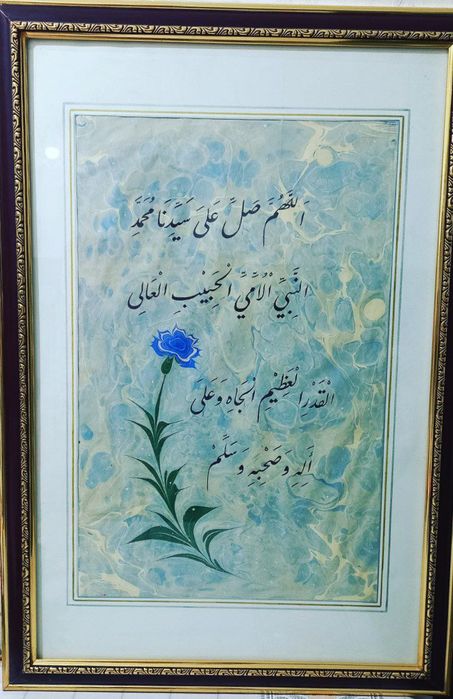 اَللّٰهُمَّ صَلِّ عَلَى سَيِّدِنَا مُحَمَّدٍ
النَّبِيِّ الْاُمِّيِّ الْحَبِيْبِ الْعَالِى
الْقَدْرِ الْعَظِيْمِ الْجَاهِ وَعَلَى
اٰلِهِ وَصَحْبِهِ وَسَلِّمْ